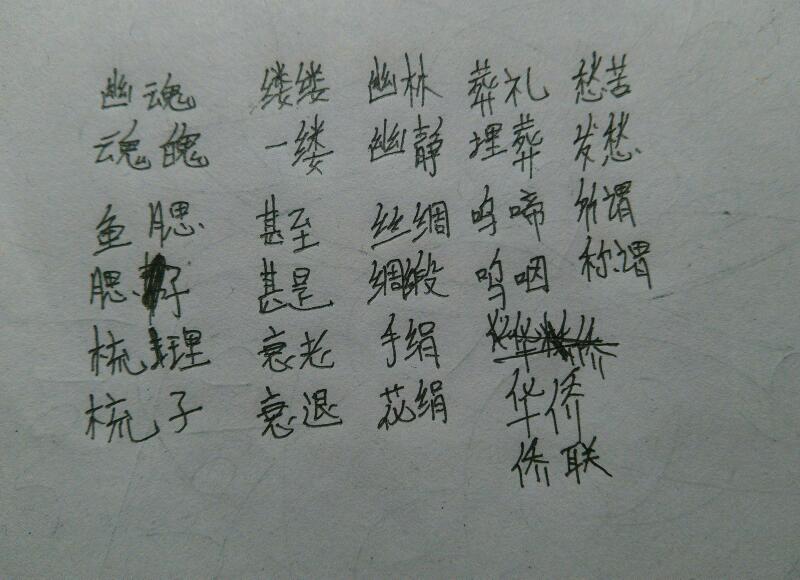 幽魂 缕缕 幽林 葬礼 愁苦
魂魄 一缕 幽静 埋葬 发愁
鱼腮 甚至 丝绸 呜啼 所谓
腮子 甚是 绸缎 呜咽 称谓
梳理 衰老 手绢
梳子 衰退 花绢 华侨
侨联